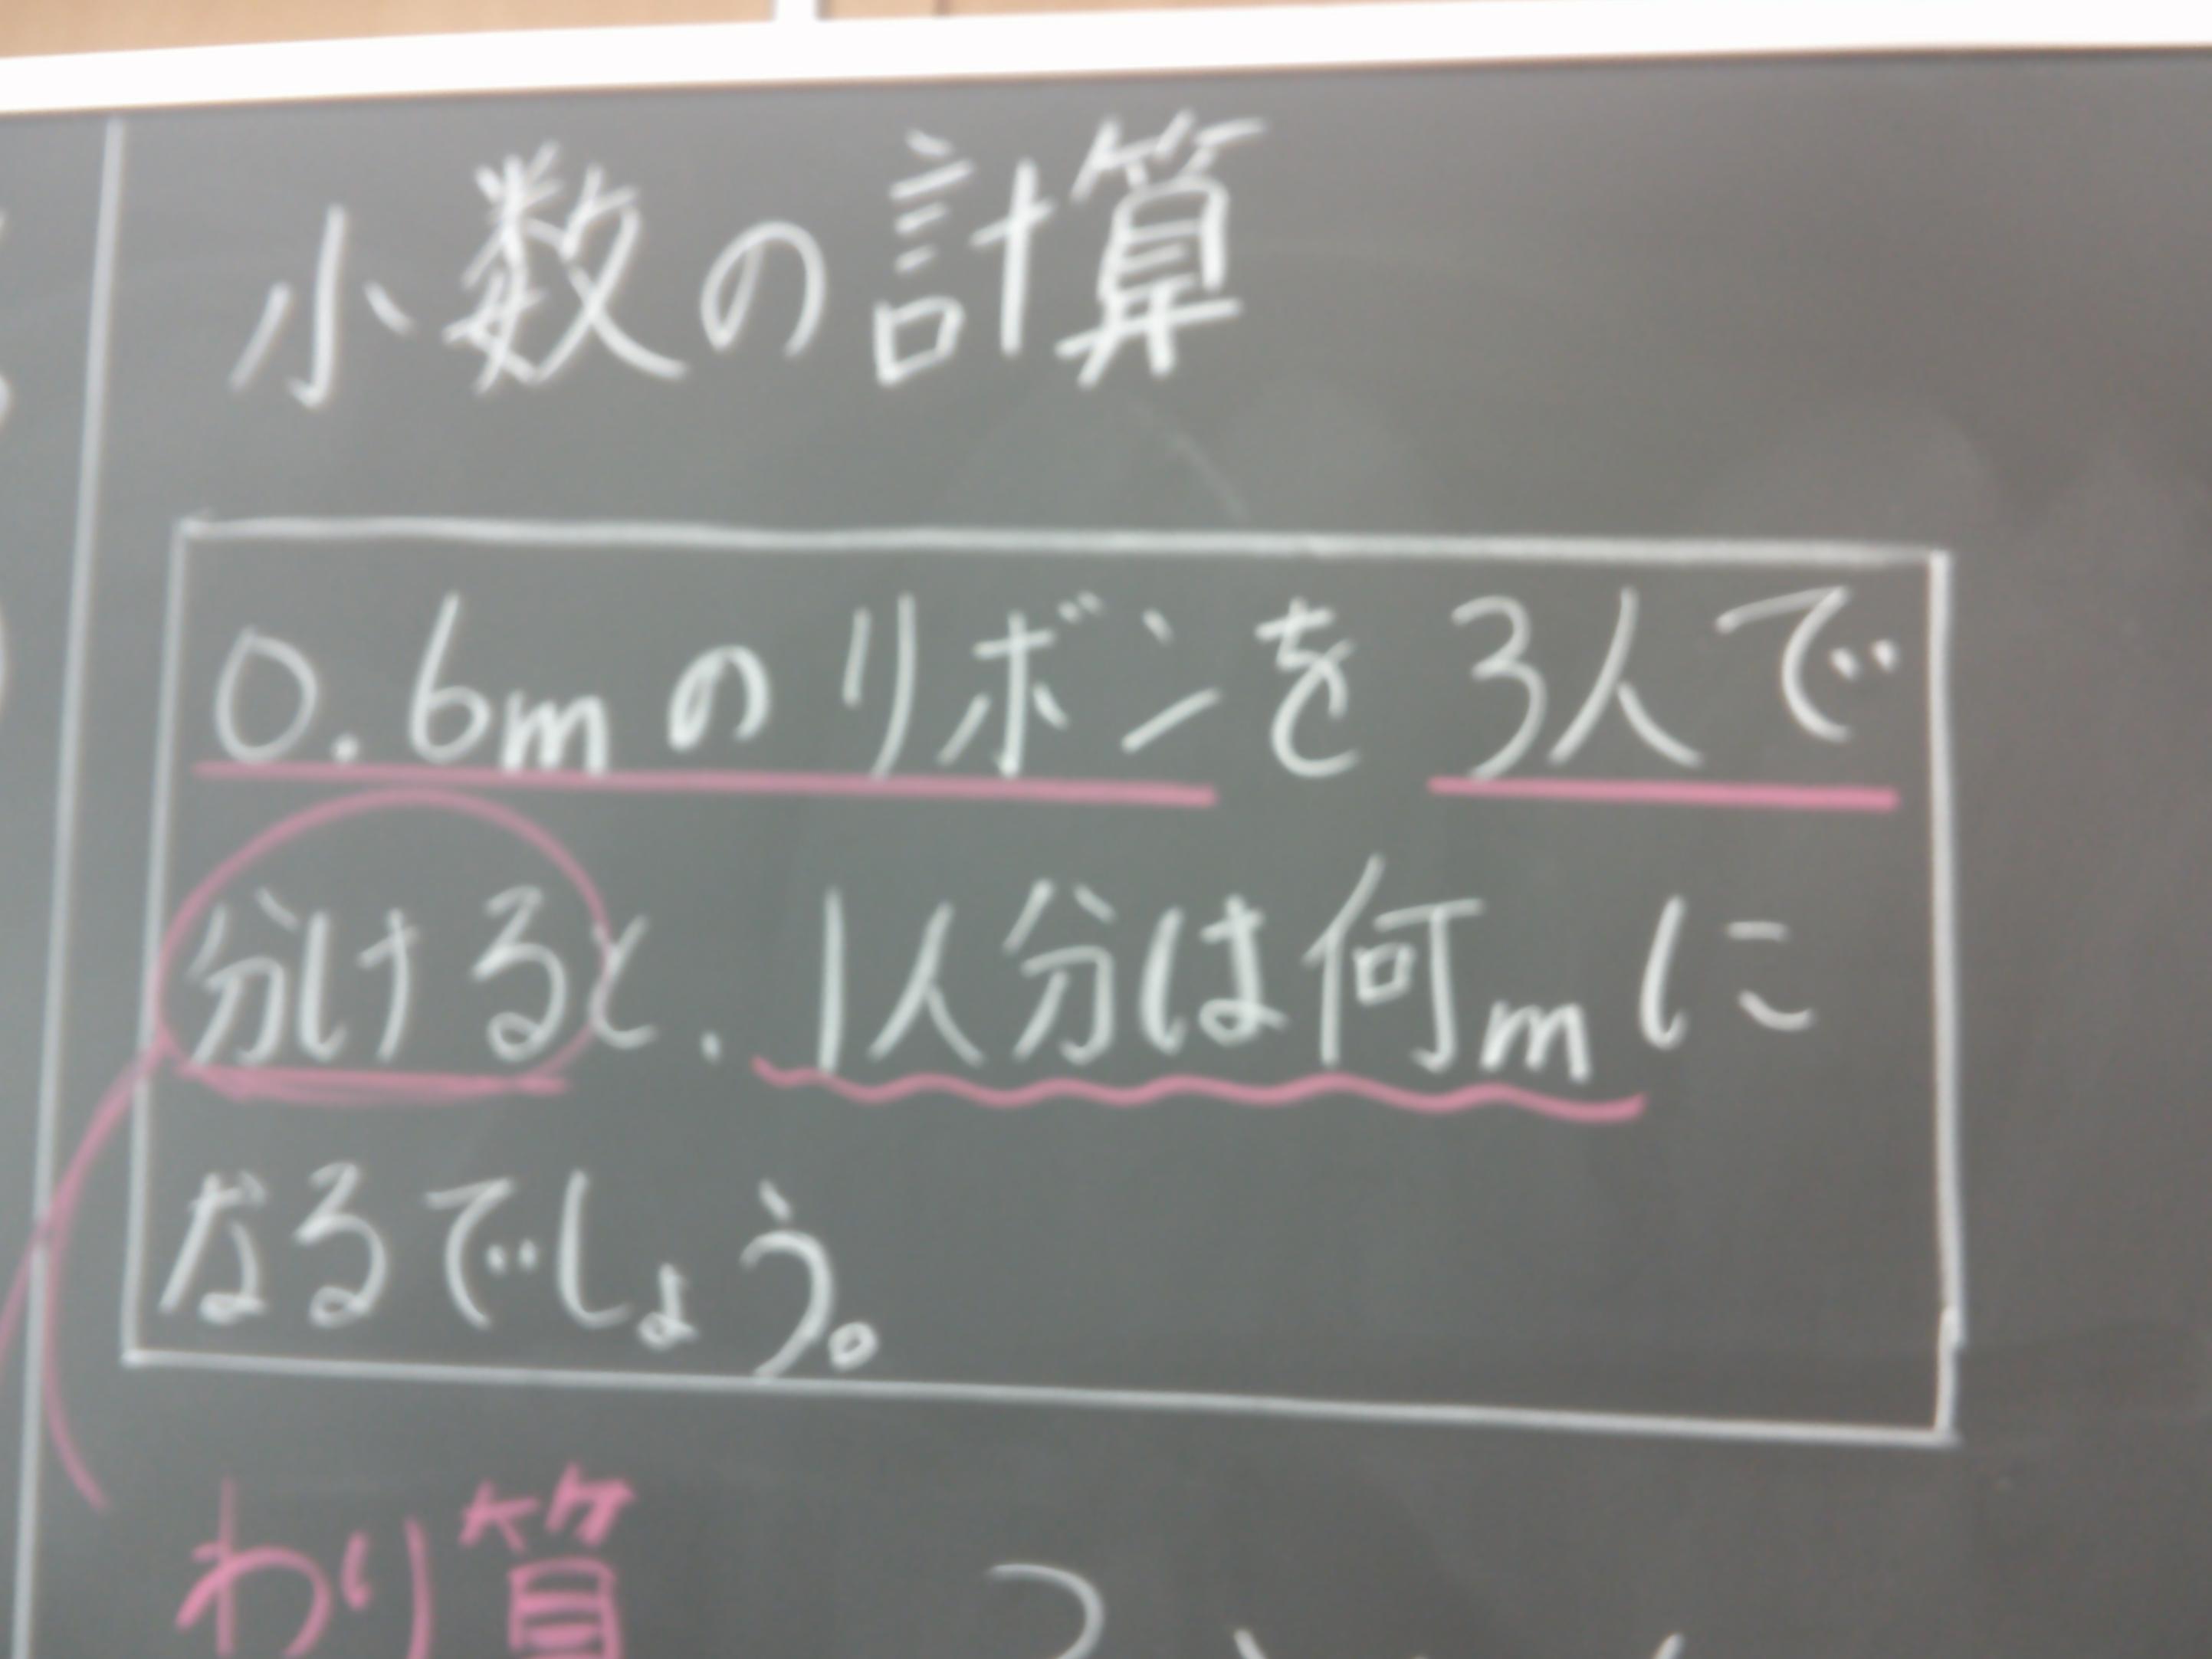 小数の計算
0.6mのリボンを3人で
分けると、1人分は何mに
なるでしょう。
わり算